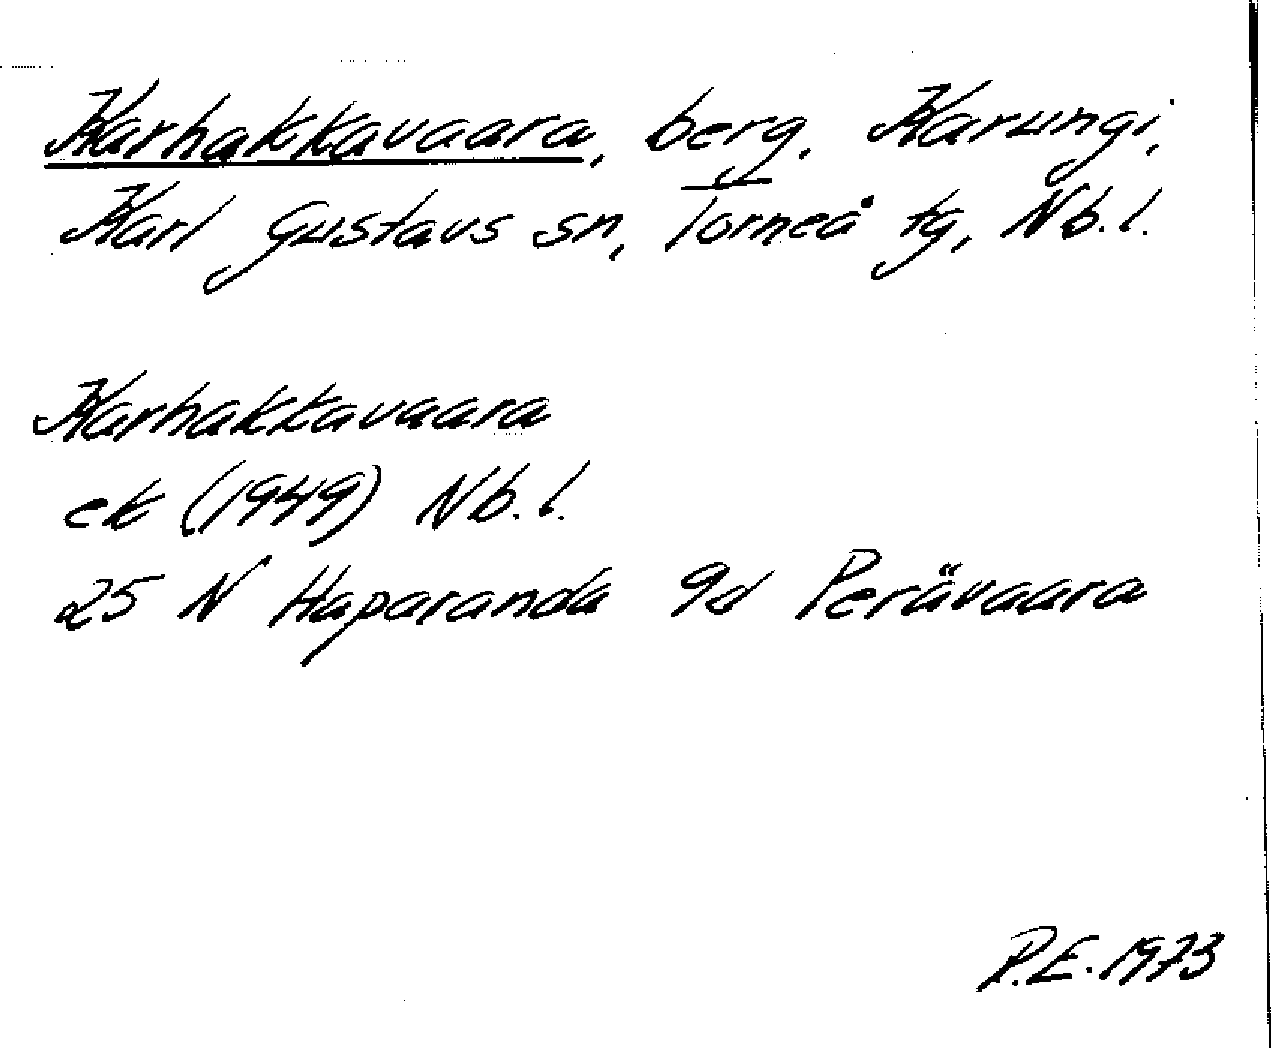 Karhakkavaara, berg, Karungi,
Karl Gustavs sn, Torneå tg, Nb.l.
Karhakkavaara
ek (1949) Nb.l.
25 N Haparanda 9d Perävaara
P.E. 1973